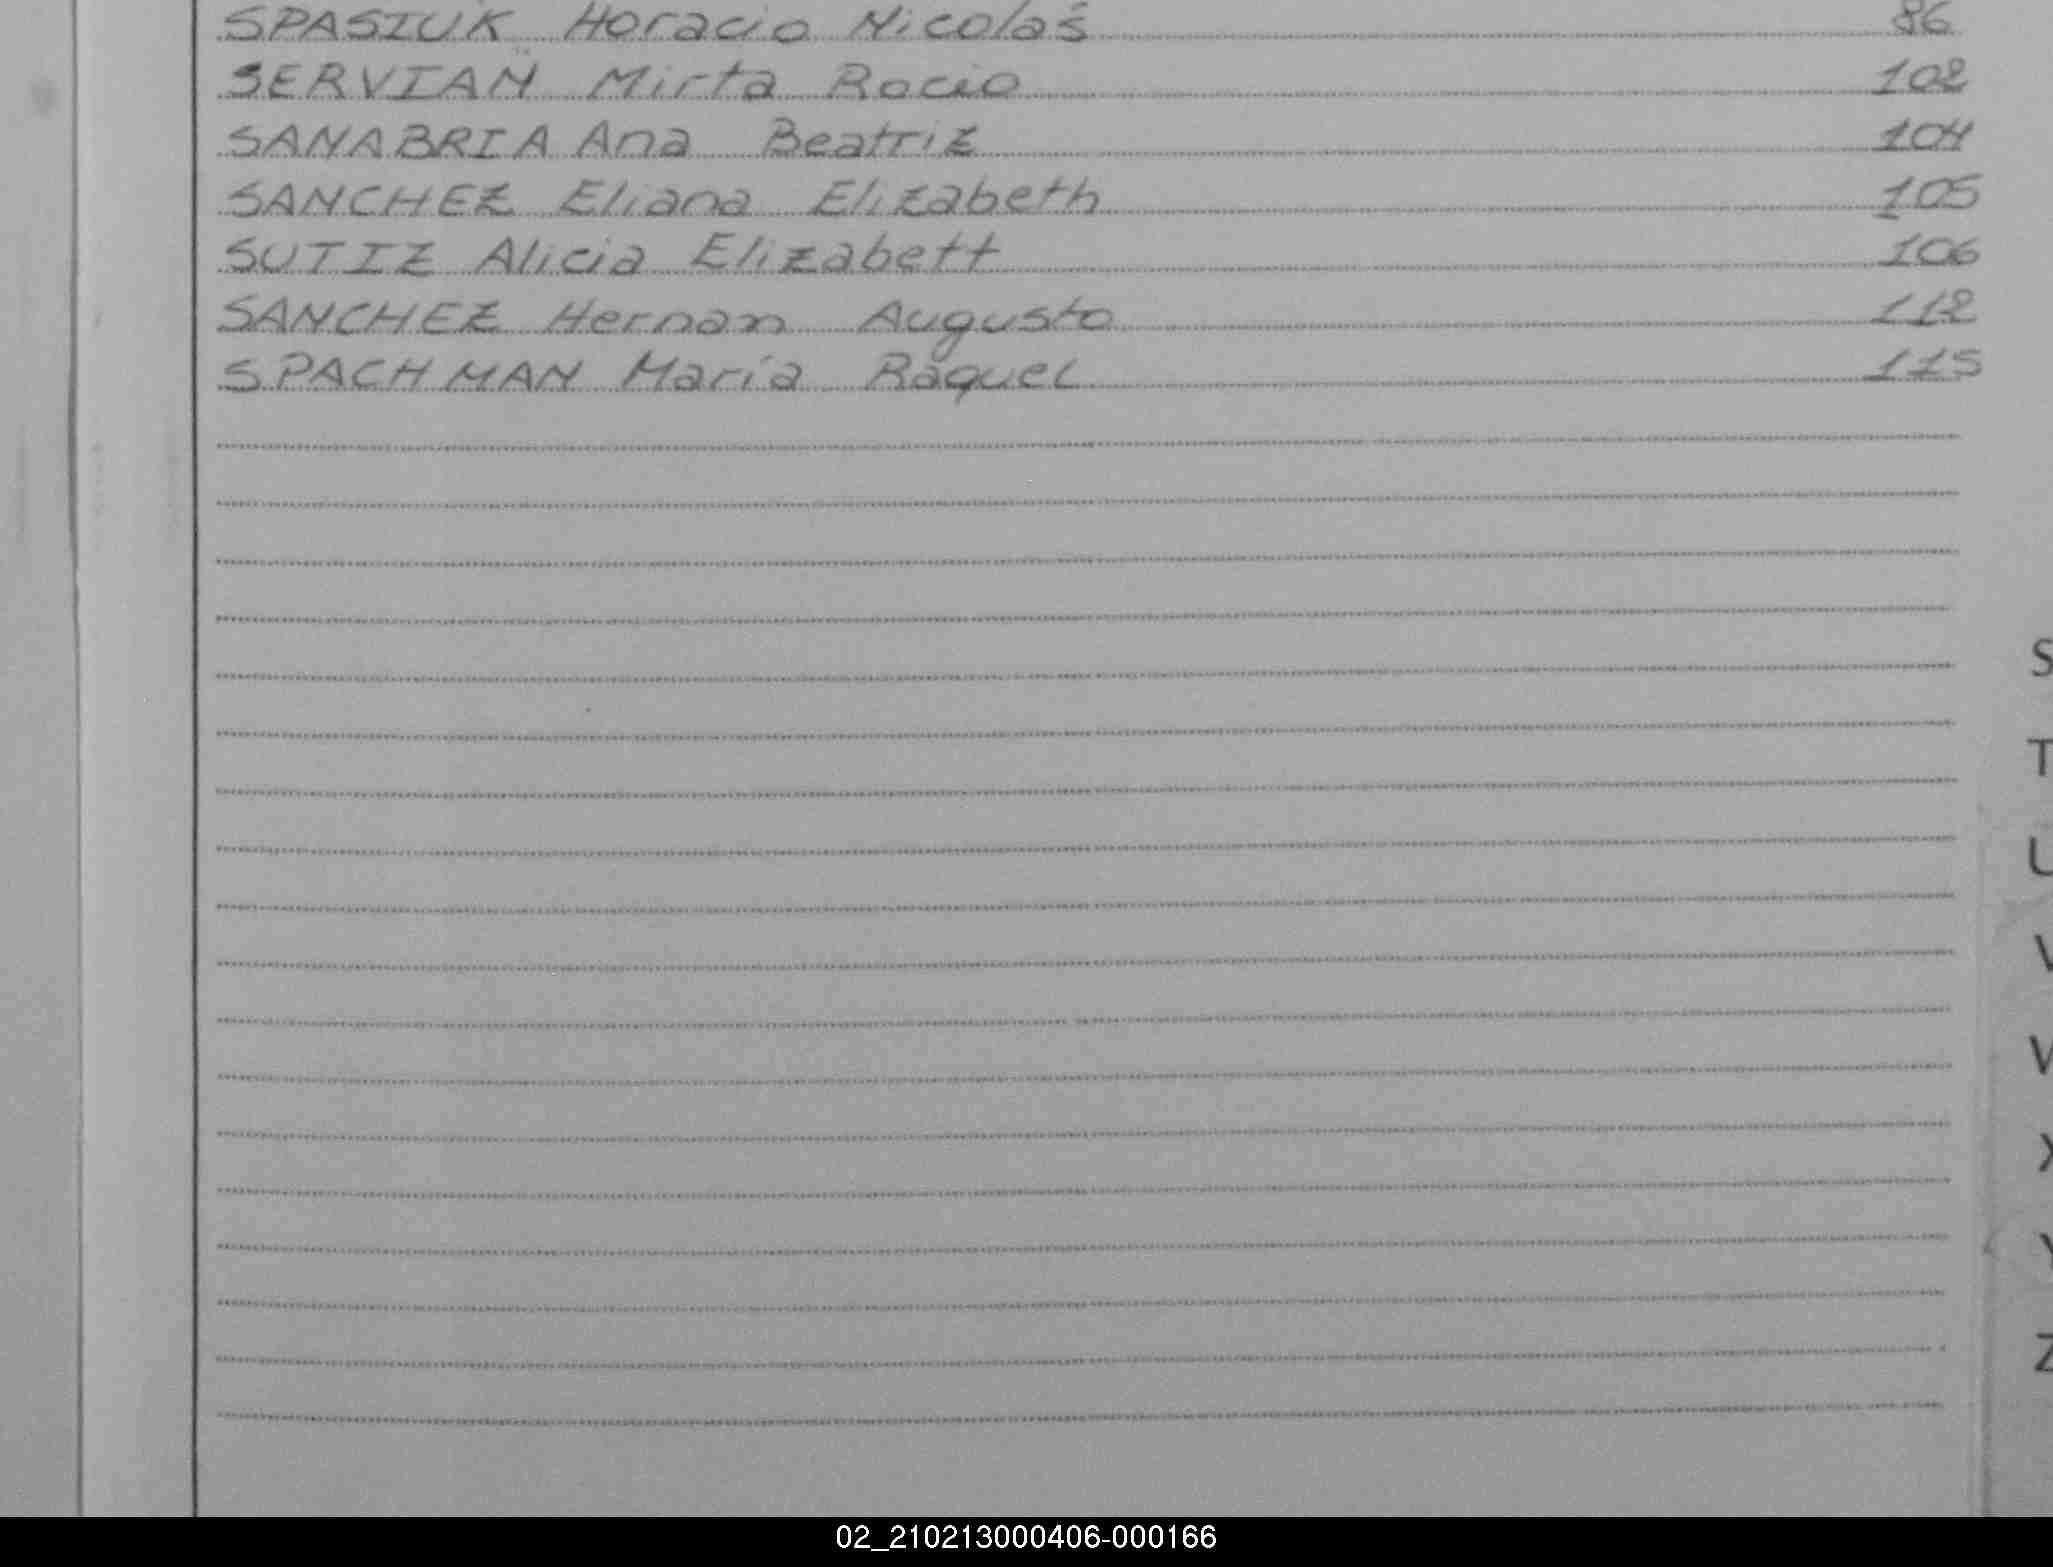 SPASIUK Horacio Nicolás 86
SERVIAN Mirta Rocio 102
SANABRIA Ana Beatriz 104
SANCHEZ Eliana Elizabeth 105
SUTIZ Alicia Elizabett 106
SANCHEZ Hernan Augusto 112
SPACHMAN María Raquel 115
S
T
U
V
W
X
Y
Z
02_210213000406-000166